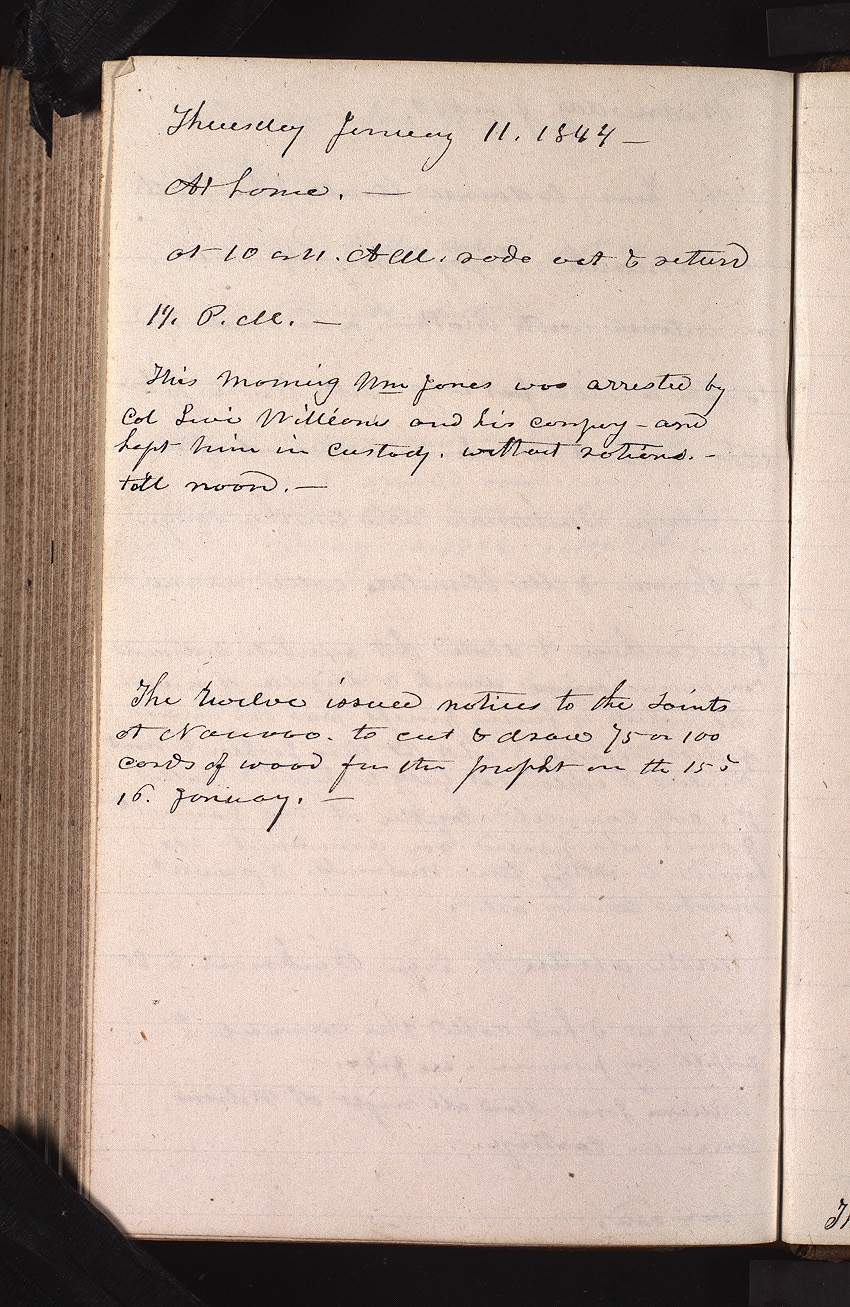 Thursday January 11. 1844 —
At home. —
at 10 A.M. rode out & return
P. M. —
This Morning Wm Jones was arrested by
Col Levi Williams and his company — and
kept him in custody. without rations. —
till noon. —
The Twelve issued notices to the Saints
at Nauvoo. to cut & draw 75 or 100
cords of wood for the prophet on the 15 &
16. January. —